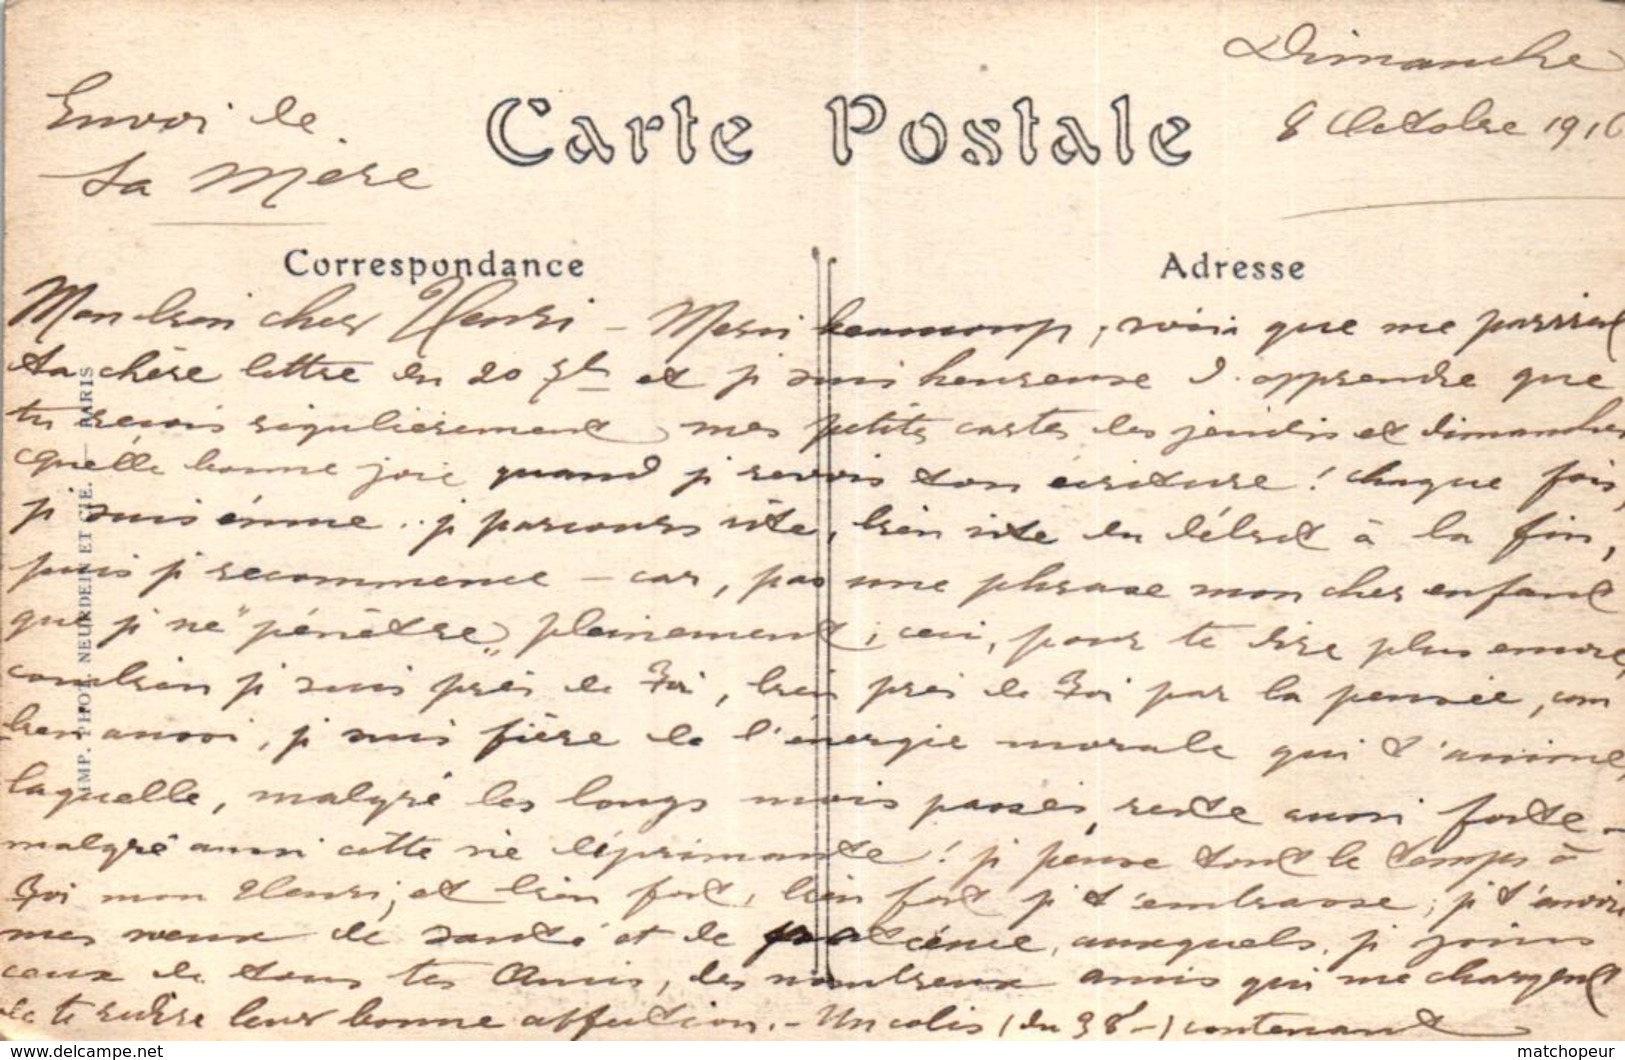 Dimanche
8 Octobre 1916
Envoi de
sa Mère
Carte Postale
Correspondance
Adresse
Mon bien cher Henri – Merci beaucoup, voici que me parvient
ta chère lettre du 20 et je suis heureuse d'apprendre que
tu reçois régulièrement mes petites cartes les jeudis et dimanches
quelle bonne joie quand je revois ton écriture ! Chaque fois,
je suis émue .. je parcours vite, bien vite du début à la fin,
puis je recommence – car, pas une phrase mon cher enfant
que je ne "pénètre" pleinement ; ceci, pour te dire plus encore,
combien je suis près de Toi, bien près de Toi par la pensée, com
bien aussi, je suis fière de l'énergie morale qui t'anime,
laquelle, malgré les longs mois passés, reste aussi forte –
malgré aussi cette vie déprimante ! je pense tout le temps à
Toi mon Henri, et bien fort, bien fort je t'embrasse ; je t'envoie
mes vœux de santé et de patience, auxquels je joins
ceux de tous tes Amis, des nombreux amis qui me chargent
de te redire leur bonne affection. – Un colis (du 38) contenant
IMP. PHOT. NEURDEIN ET CIE. — PARIS
matchopeur
www.delcampe.net